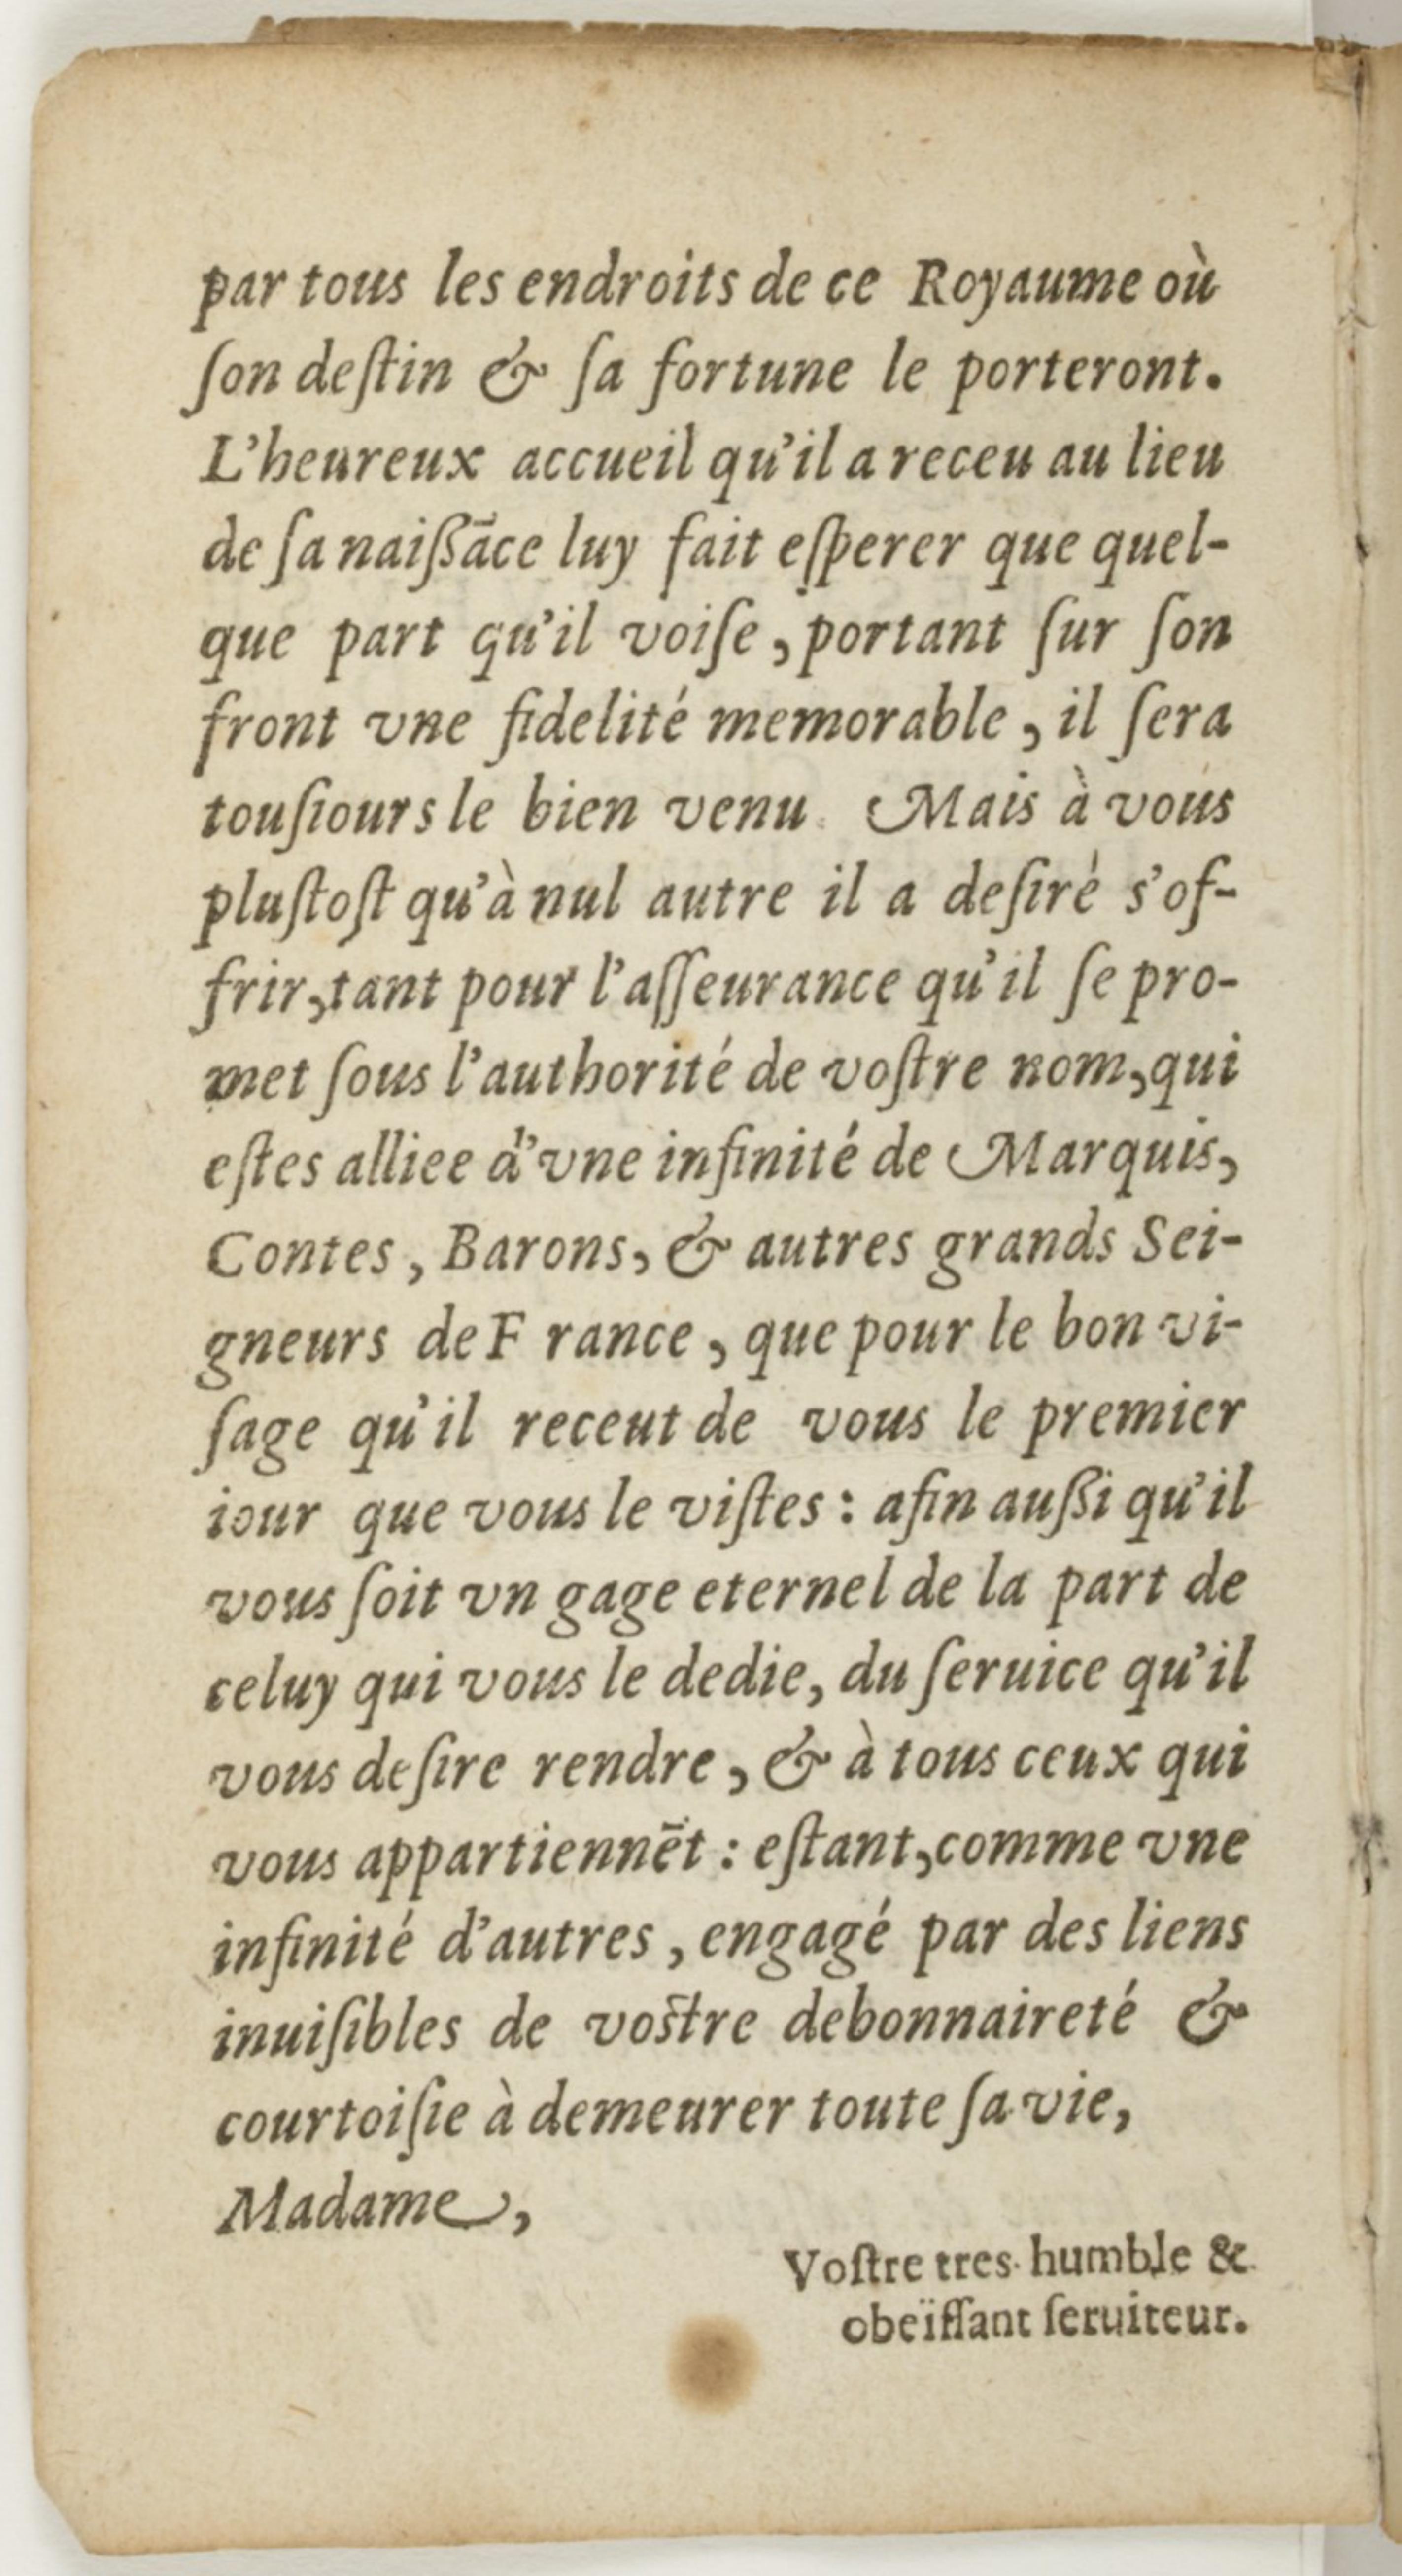 par tous les endroits de ce Royaume où
ſon deſtin & ſa fortune le porteront.
L'heureux accueil qu'il a receu au lieu
de ſa naiſſāce luy fait eſperer que quel-
que part qu'il voiſe, portant ſur ſon
front vne fidelité memorable, il ſera
touſiours le bien venu. Mais à vous
pluſtoſt qu'à nul autre il a deſiré s'of-
frir, tant pour l'aſſeurance qu'il ſe pro-
met ſous l'authorité de voſtre nom, qui
eſtes alliee d'vne infinité de Marquis,
Contes, Barons, & autres grands Sei-
gneurs de F rance, que pour le bon vi-
ſage qu'il receut de vous le premier
iour que vous le viſtes : afin auſſi qu'il
vous ſoit vn gage eternel de la part de
celuy qui vous le dedie, du ſeruice qu'il
vous deſire rendre, & à tous ceux qui
vous appartiennēt : eſtant, comme vne
infinité d'autres, engagé par des liens
inuiſibles de voſtre debonnaireté &
courtoiſie à demeurer toute ſa vie,
Madame,
Voſtre tres humble &
obeïſſant ſeruiteur.